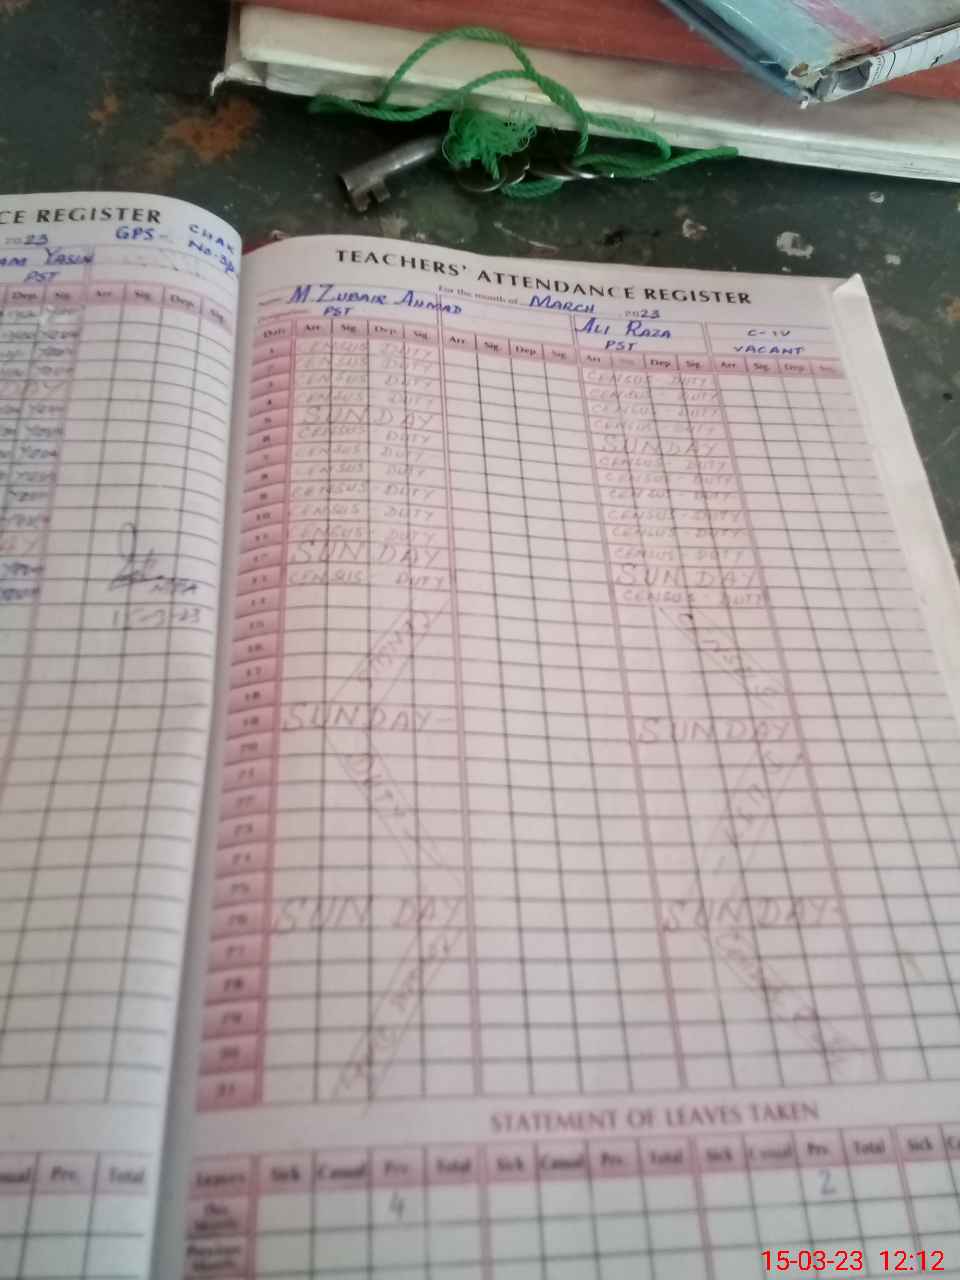 CE REGISTER
2023 GPS- CHAK
No-3P
AM YASIN
PST
Dep. Sig. Arr. Sig. Dep. Sig.
NTSA
15-3-23
TEACHERS' ATTENDANCE REGISTER
For the month of MARCH 2023
Name M ZUBAIR AHMAD ALI RAZA C-IV
Designation PST PST VACANT
Date Arr. Sig. Dep. Sig. Arr. Sig. Dep. Sig. Arr. Sig. Dep. Sig. Arr. Sig. Dep. Sig.
1 CENSUS DUTY CENSUS - DUTY
2 CENSUS DUTY CENSUS - DUTY
3 CENSUS DUTY CENSUS - DUTY
4 CENSUS DUTY CENSUS - DUTY
5 SUNDAY SUNDAY
6 CENSUS DUTY CENSUS - DUTY
7 CENSUS DUTY CENSUS - DUTY
8 CENSUS DUTY CENSUS - DUTY
9 CENSUS - DUTY CENSUS - DUTY
10 CENSUS DUTY CENSUS - DUTY
11 CENSUS DUTY CENSUS - DUTY
12 SUNDAY SUNDAY
13 CENSUS - DUTY CENSUS - DUTY
14
15 CENSUS
16
17
18
19 SUNDAY- SUNDAY
20
21 DUTY
22
23
24
25
26 SUN DAY SUNDAY-
27
28 CENSUS DUTY
29
30
31
STATEMENT OF LEAVES TAKEN
Casual Prv. Total Leaves Sick Casual Prv. Total Sick Casual Prv. Total Sick Casual Prv. Total Sick
This Month 4 2
Previous Month
15-03-23 12:12